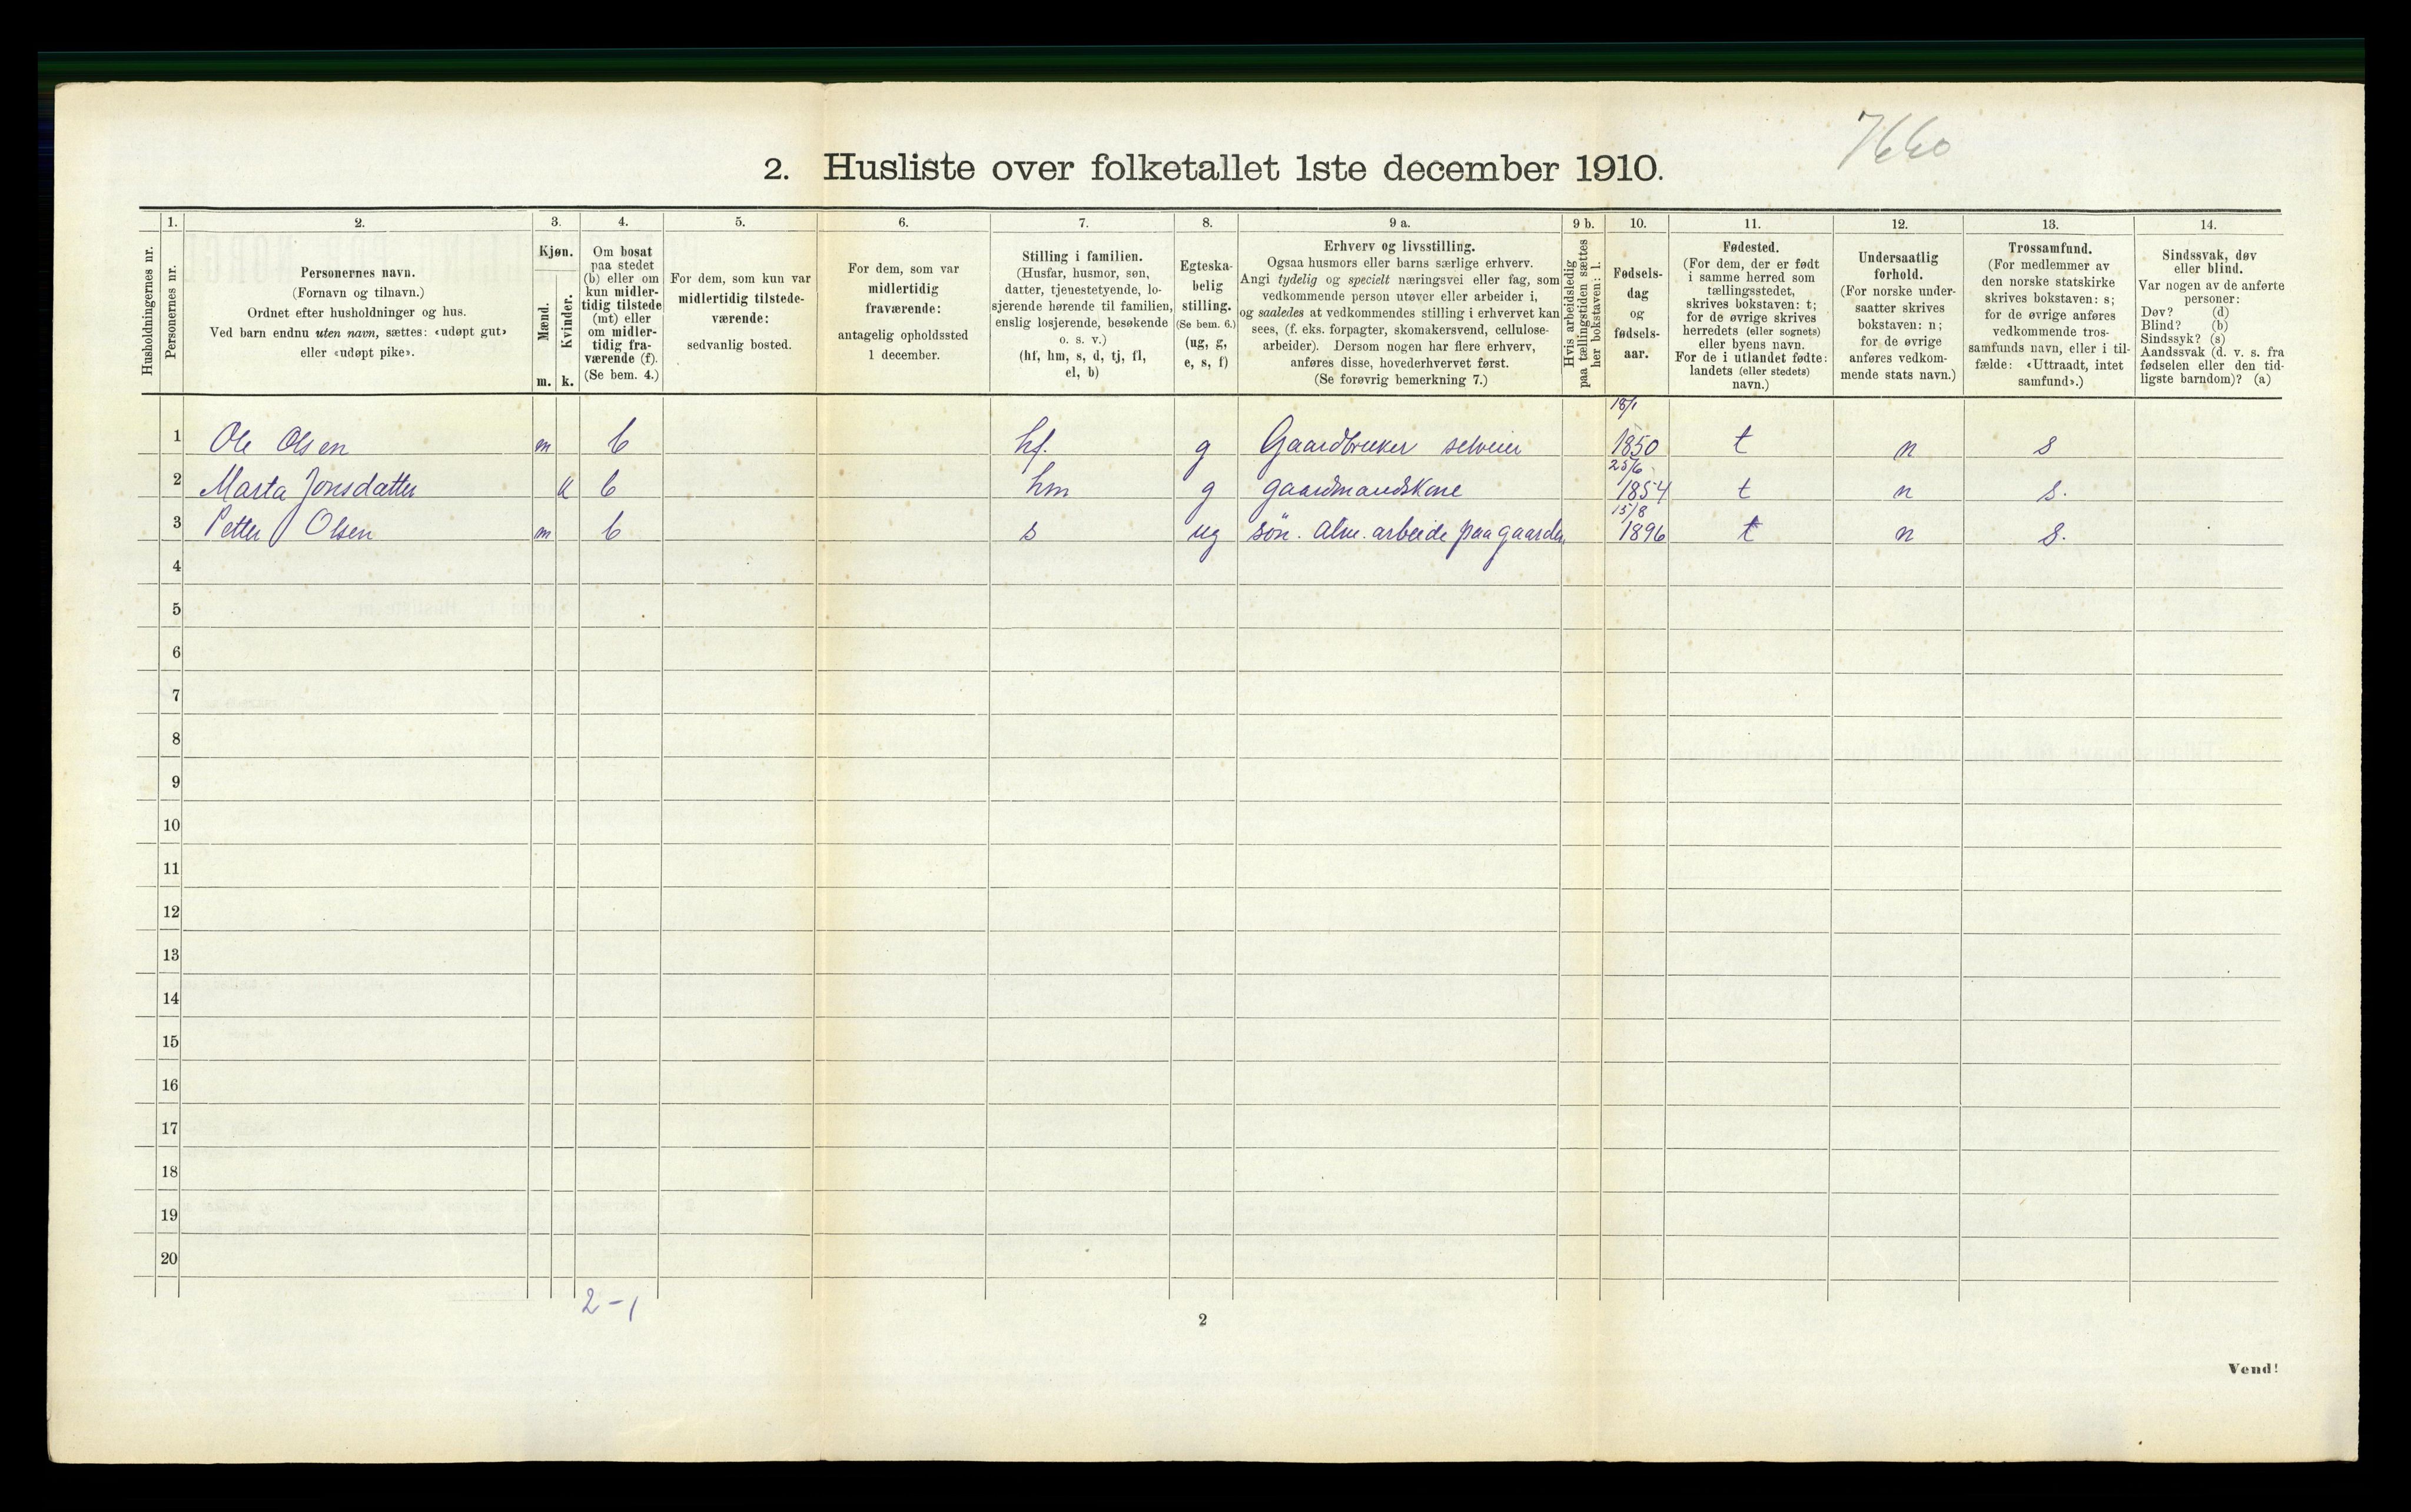 7660
2. Husliste over folketallet 1ste december 1910.
Husholdningernes nr.
1.
Personernes nr.
2.
Personernes navn.
(Fornavn og tilnavn.)
Ordnet efter husholdninger og hus.
Ved barn endnu uten navn, sættes: «udøpt gut»
eller «udøpt pike».
3.
Kjøn.
Mænd.
m.
Kvinder.
k.
4.
Om bosat
paa stedet
(b) eller om
kun midler-
tidig tilstede
(mt) eller
om midler-
tidig fra-
værende (f).
(Se bem. 4.)
5.
For dem, som kun var
midlertidig tilstede-
værende:
sedvanlig bosted.
6.
For dem, som var
midlertidig
fraværende:
antagelig opholdssted
1 december.
7.
Stilling i familien.
(Husfar, husmor, søn,
datter, tjenestetyende, lo-
sjerende hørende til familien,
enslig losjerende, besøkende
o. s. v.)
(hf, hm, s, d, tj, fl,
el, b)
8.
Egteska-
belig
stilling.
(Se bem. 6.)
(ug, g,
e, s, f)
9 a.
Erhverv og livsstilling.
Ogsaa husmors eller barns særlige erhverv.
Angi tydelig og specielt næringsvei eller fag, som
vedkommende person utøver eller arbeider i,
og saaledes at vedkommendes stilling i erhvervet kan
sees, (f. eks. forpagter, skomakersvend, cellulose-
arbeider). Dersom nogen har flere erhverv,
anføres disse, hovederhvervet først.
(Se forøvrig bemerkning 7.)
9 b.
Hvis arbeidsledig
paa tællingstiden sættes
her bokstaven: l.
10.
Fødsels-
dag
og
fødsels-
aar.
11.
Fødested.
(For dem, der er født
i samme herred som
tællingsstedet,
skrives bokstaven: t;
for de øvrige skrives
herredets (eller sognets)
eller byens navn.
For de i utlandet fødte:
landets (eller stedets)
navn.)
12.
Undersaatlig
forhold.
(For norske under-
saatter skrives
bokstaven: n;
for de øvrige
anføres vedkom-
mende stats navn.)
13.
Trossamfund.
(For medlemmer av
den norske statskirke
skrives bokstaven: s;
for de øvrige anføres
vedkommende tros-
samfunds navn, eller i til-
fælde: «Uttraadt, intet
samfund».)
14.
Sindssvak, døv
eller blind.
Var nogen av de anførte
personer:
Døv? (d)
Blind? (b)
Sindssyk? (s)
Aandssvak (d. v. s. fra
fødselen eller den tid-
ligste barndom)? (a)
18/1
1 Ole Olsen m b hf. g Gaardbruker selveier 1850 t n s
25/6
2 Marta Jonsdatter k b hm g gaardmandskone 1854 t n s.
15/8
3 Petter Olsen m b s ug søn. Alm. arbeide paa gaarden 1896 t n s.
4
5
6
7
8
9
10
11
12
13
14
15
16
17
18
19
20
2-1
2
Vend!